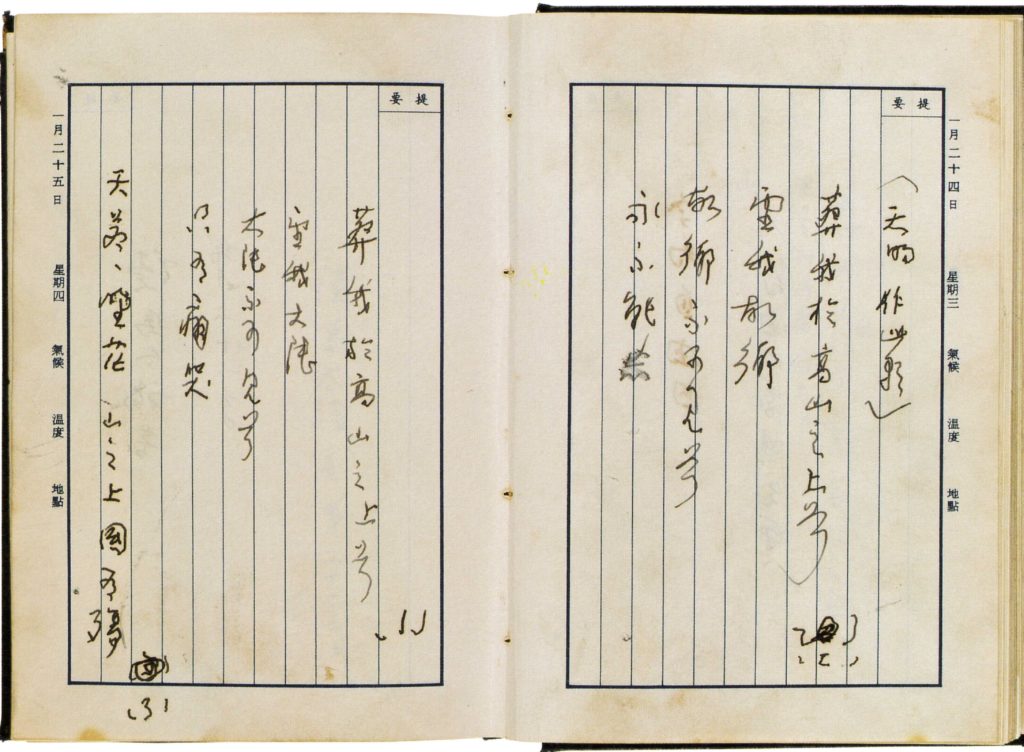 一月二十四日 星期三 氣候 溫度 地點
提要
（天明作此歌）
葬我於高山之上兮
望我故鄉
故鄉不可見兮
永不能忘
一月二十五日 星期四 氣候 溫度 地點
提要
葬我於高山之上兮
望我大陸
大陸不可見兮
只有痛哭
天蒼、野茫、山之上國有殤